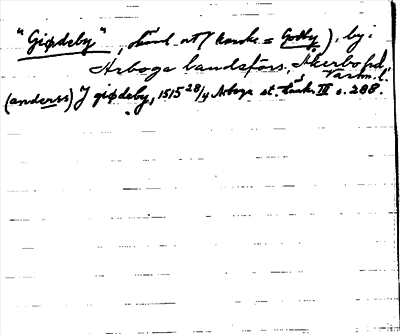 "Giødeby", okänd ort (kanske = Godby), by:
Arboga landsförs., Åkerbo hd, Västm.l.
(anders) J giødeby, 1515 28/4 Arboga st. tänk. III s. 288.